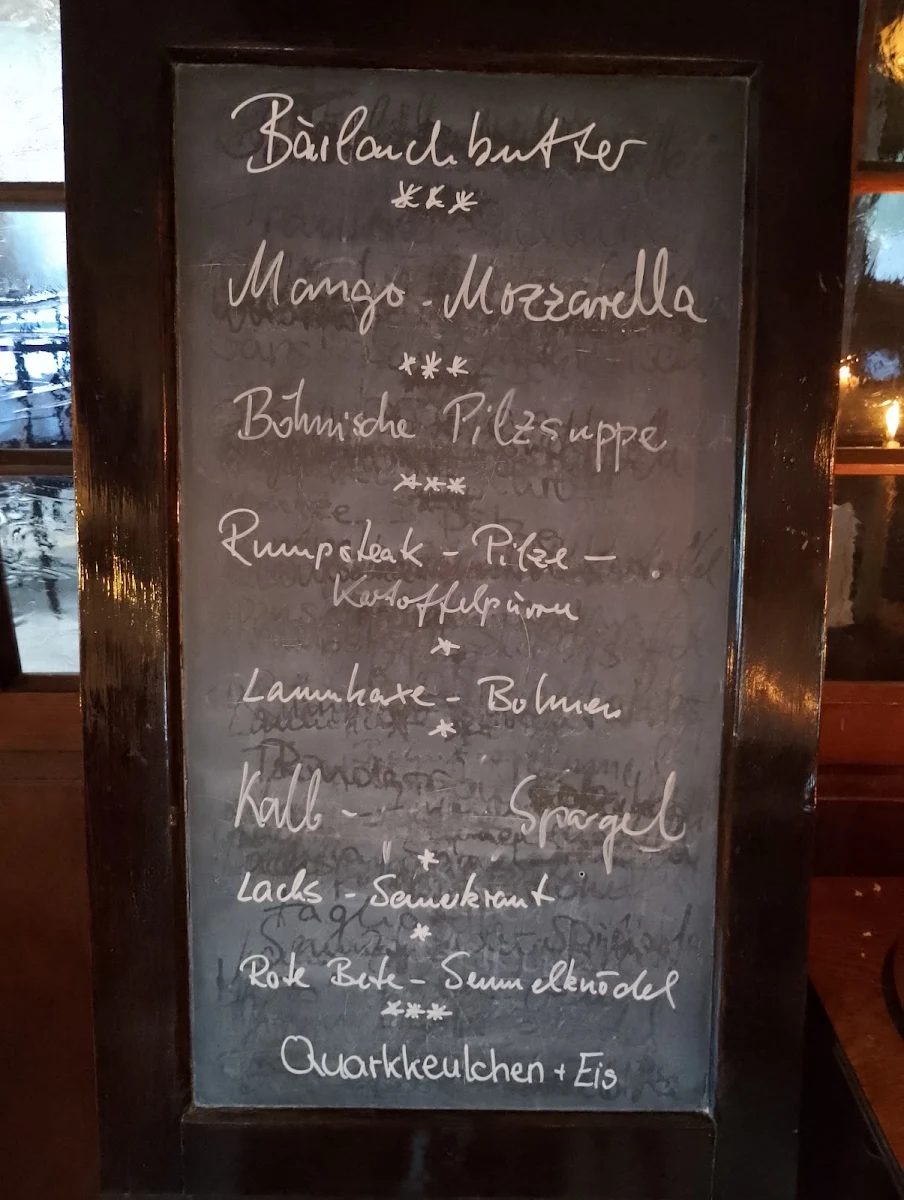 Bärlauchbutter
***
Mango-Mozzarella
***
Böhmische Pilzsuppe
***
Rumpsteak - Pilze -
Kartoffelpüree
*
Lammhaxe - Bohnen
*
Kalb - Spargel
*
Lachs - Sauerkraut
*
Rote Bete - Semmelknödel
***
Quarkkeulchen + Eis